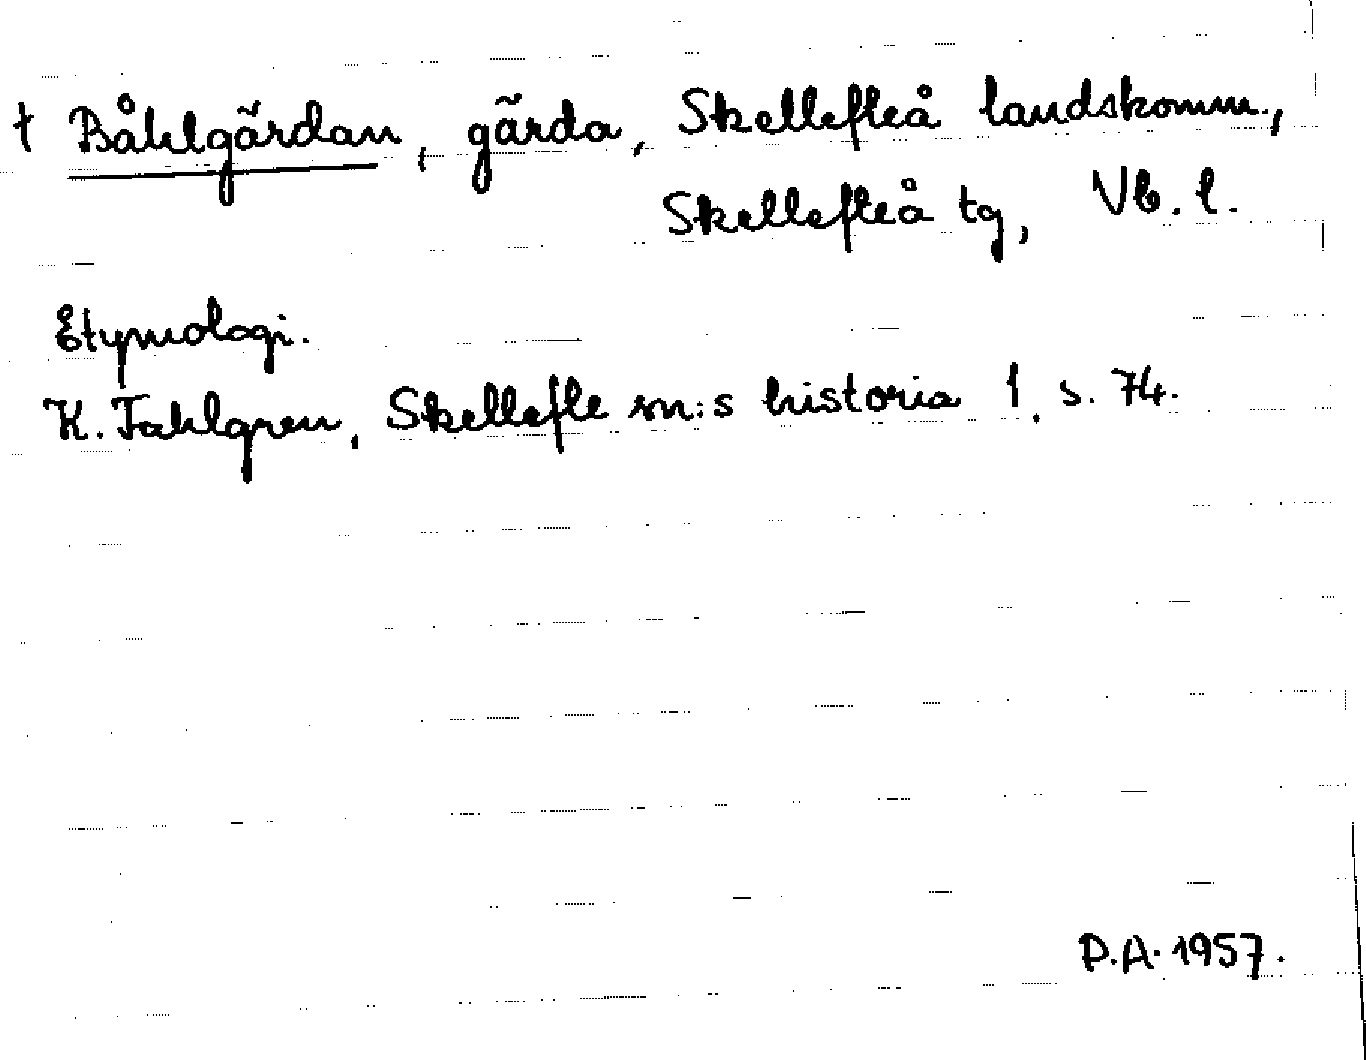 † Båhlgärdan, gärda, Skellefteå landskomm.,
Skellefteå tg, Vb. l.
Etymologi.
K. Fahlgren, Skellefte sn:s historia 1, s. 74.
P.A. 1957.